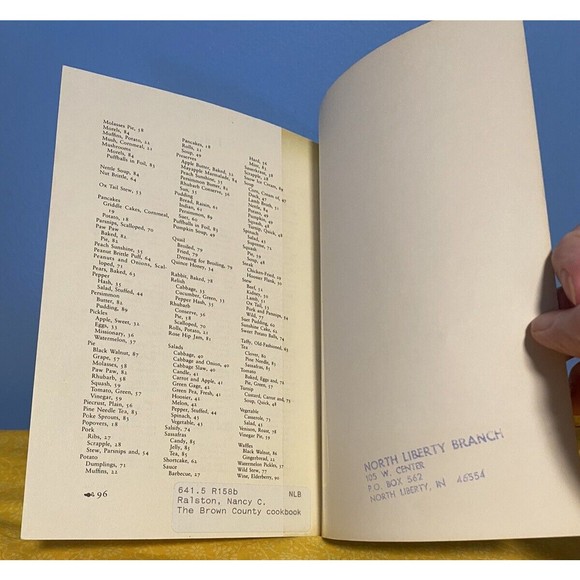 Molasses Pie, 58
Morels, 84
Muffins, Potato, 22
Mush, Cornmeal, 21
Mushrooms
Morels, 84
Puffballs in Foil, 83
Nettle Soup, 84
Nut Brittle, 64
Ox Tail Stew, 53
Pancakes
Griddle Cakes, Cornmeal,
19
Potato, 18
Parsnips, Scalloped, 70
Paw Paw
Baked, 82
Pie, 82
Peach Sunshine, 35
Peanut Brittle Puff, 64
Peanuts and Onions, Scal-
loped, 71
Pears, Baked, 63
Pepper
Hash, 35
Salad, Stuffed, 44
Persimmon
Butter, 82
Pudding, 89
Pickles
Apple, Sweet, 32
Eggs, 33
Missionary, 36
Watermelon, 37
Pie
Black Walnut, 87
Grape, 57
Molasses, 58
Paw Paw, 82
Rhubarb, 58
Squash, 59
Tomato, Green, 57
Vinegar, 59
Piecrust, Plain, 56
Pine Needle Tea, 83
Poke Sprouts, 83
Popovers, 22
Pork
Ribs, 27
Scrapple, 28
Stew, Parsnips and, 54
Potato
Dumplings, 71
Muffins, 22
Pancakes, 18
Rolls, 21
Soup, 49
Preserves
Apple Butter, Baked, 32
Mayapple Marmalade, 84
Peach Sunshine, 35
Persimmon Butter, 82
Rhubarb Conserve, 36
Pudding
Bread, Raisin, 61
Indian, 61
Persimmon, 89
Suet, 60
Puffballs in Foil, 83
Pumpkin Soup, 49
Quail
Broiled, 79
Fried, 79
Dressing for Broiling, 79
Quince Honey, 34
Rabbit, Baked, 78
Relish
Cabbage, 33
Cucumber, Green, 33
Pepper Hash, 35
Rhubarb
Conserve, 36
Pie, 58
Scalloped, 70
Rolls, Potato, 21
Rose Hip Jam, 81
Salads
Cabbage, 40
Cabbage and Onion, 40
Cabbage Slaw, 40
Candle, 41
Carrot and Apple, 41
Green Gage, 41
Green Pea, Fresh, 42
Hoosier, 42
Melon, 42
Pepper, Stuffed, 44
Spinach, 43
Vegetable, 43
Salsify, 74
Sassafras
Candy, 85
Jelly, 85
Tea, 85
Shortcake, 62
Sauce
Barbecue, 27
Hard, 56
Mint, 85
Sauerkraut, 72
Scrapple, 28
Snow Ice Cream, 65
Soup
Corn, Cream of, 47
Duck, 47
Lamb Broth, 48
Nettle, 84
Potato, 49
Pumpkin, 49
Squash, 49
Turnip, Quick, 48
Spinach
Salad, 43
Supreme, 73
Squash
Pie, 59
Soup, 49
Steak
Chicken-Fried, 29
Hoosier Flank, 30
Stew
Beef, 51
Kidney, 50
Lamb, 52
Ox Tail, 53
Pork and Parsnips, 54
Wild, 77
Suet Pudding, 60
Sunshine Cake, 62
Sweet Potato Balls, 74
Taffy, Old-Fashioned, 65
Tea
Clover, 80
Pine Needle, 83
Sassafras, 85
Tomato
Baked, Eggs and, 72
Pie, Green, 57
Turnip
Custard, Carrot and, 75
Soup, Quick, 48
Vegetable
Casserole, 75
Salad, 43
Venison, Roast, 78
Vinegar Pie, 59
Waffles
Black Walnut, 88
Gingerbread, 22
Watermelon Pickle, 37
Wild Stew, 77
Wine, Elderberry, 80
96
641.5 R158b NLB
Ralston, Nancy C.
The Brown County cookbook
NORTH LIBERTY BRANCH
105 W. CENTER
P.O. BOX 562
NORTH LIBERTY, IN 46554